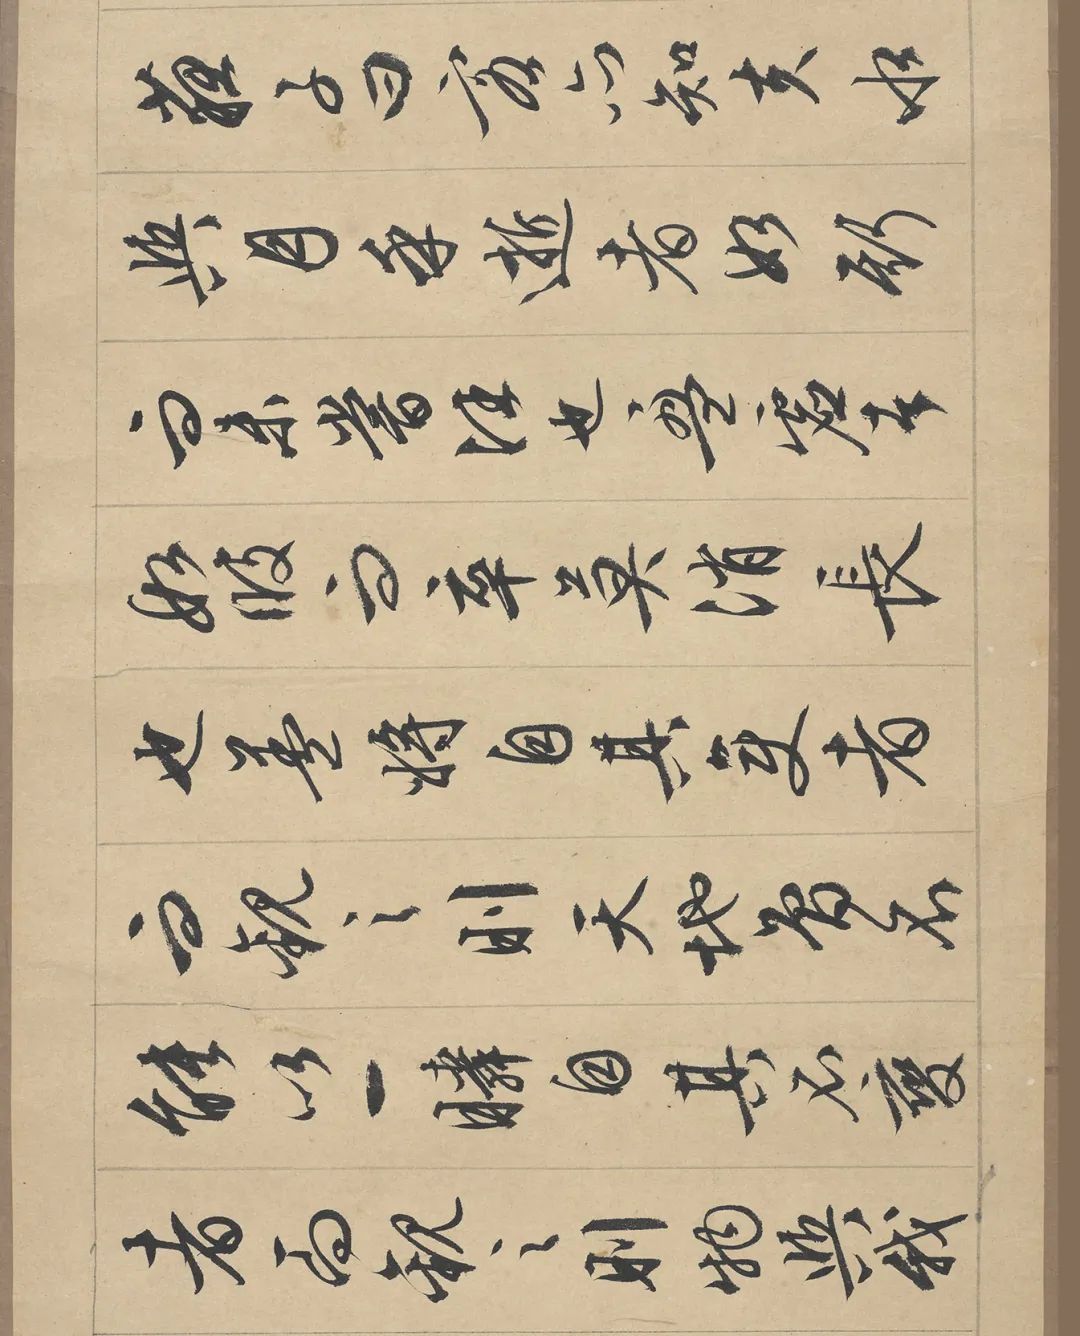 蘇子曰客亦知夫水
與月乎逝者如斯
而未嘗往也盈虛者
如彼而卒莫消長
也蓋將自其變者
而觀之則天地曾不
能以一瞬自其不變
者而觀之則物與我